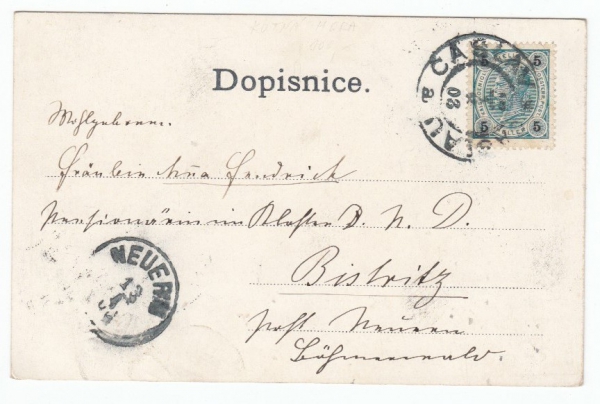 Dopisnice.
Wohlgeboren.
Fräulein Anna
Pensionärin im Kloster D. N. D.
Bistritz
post Neuern
Böhmerwald.
ČASLAU
a
03
5 5
5 5
NEUERN